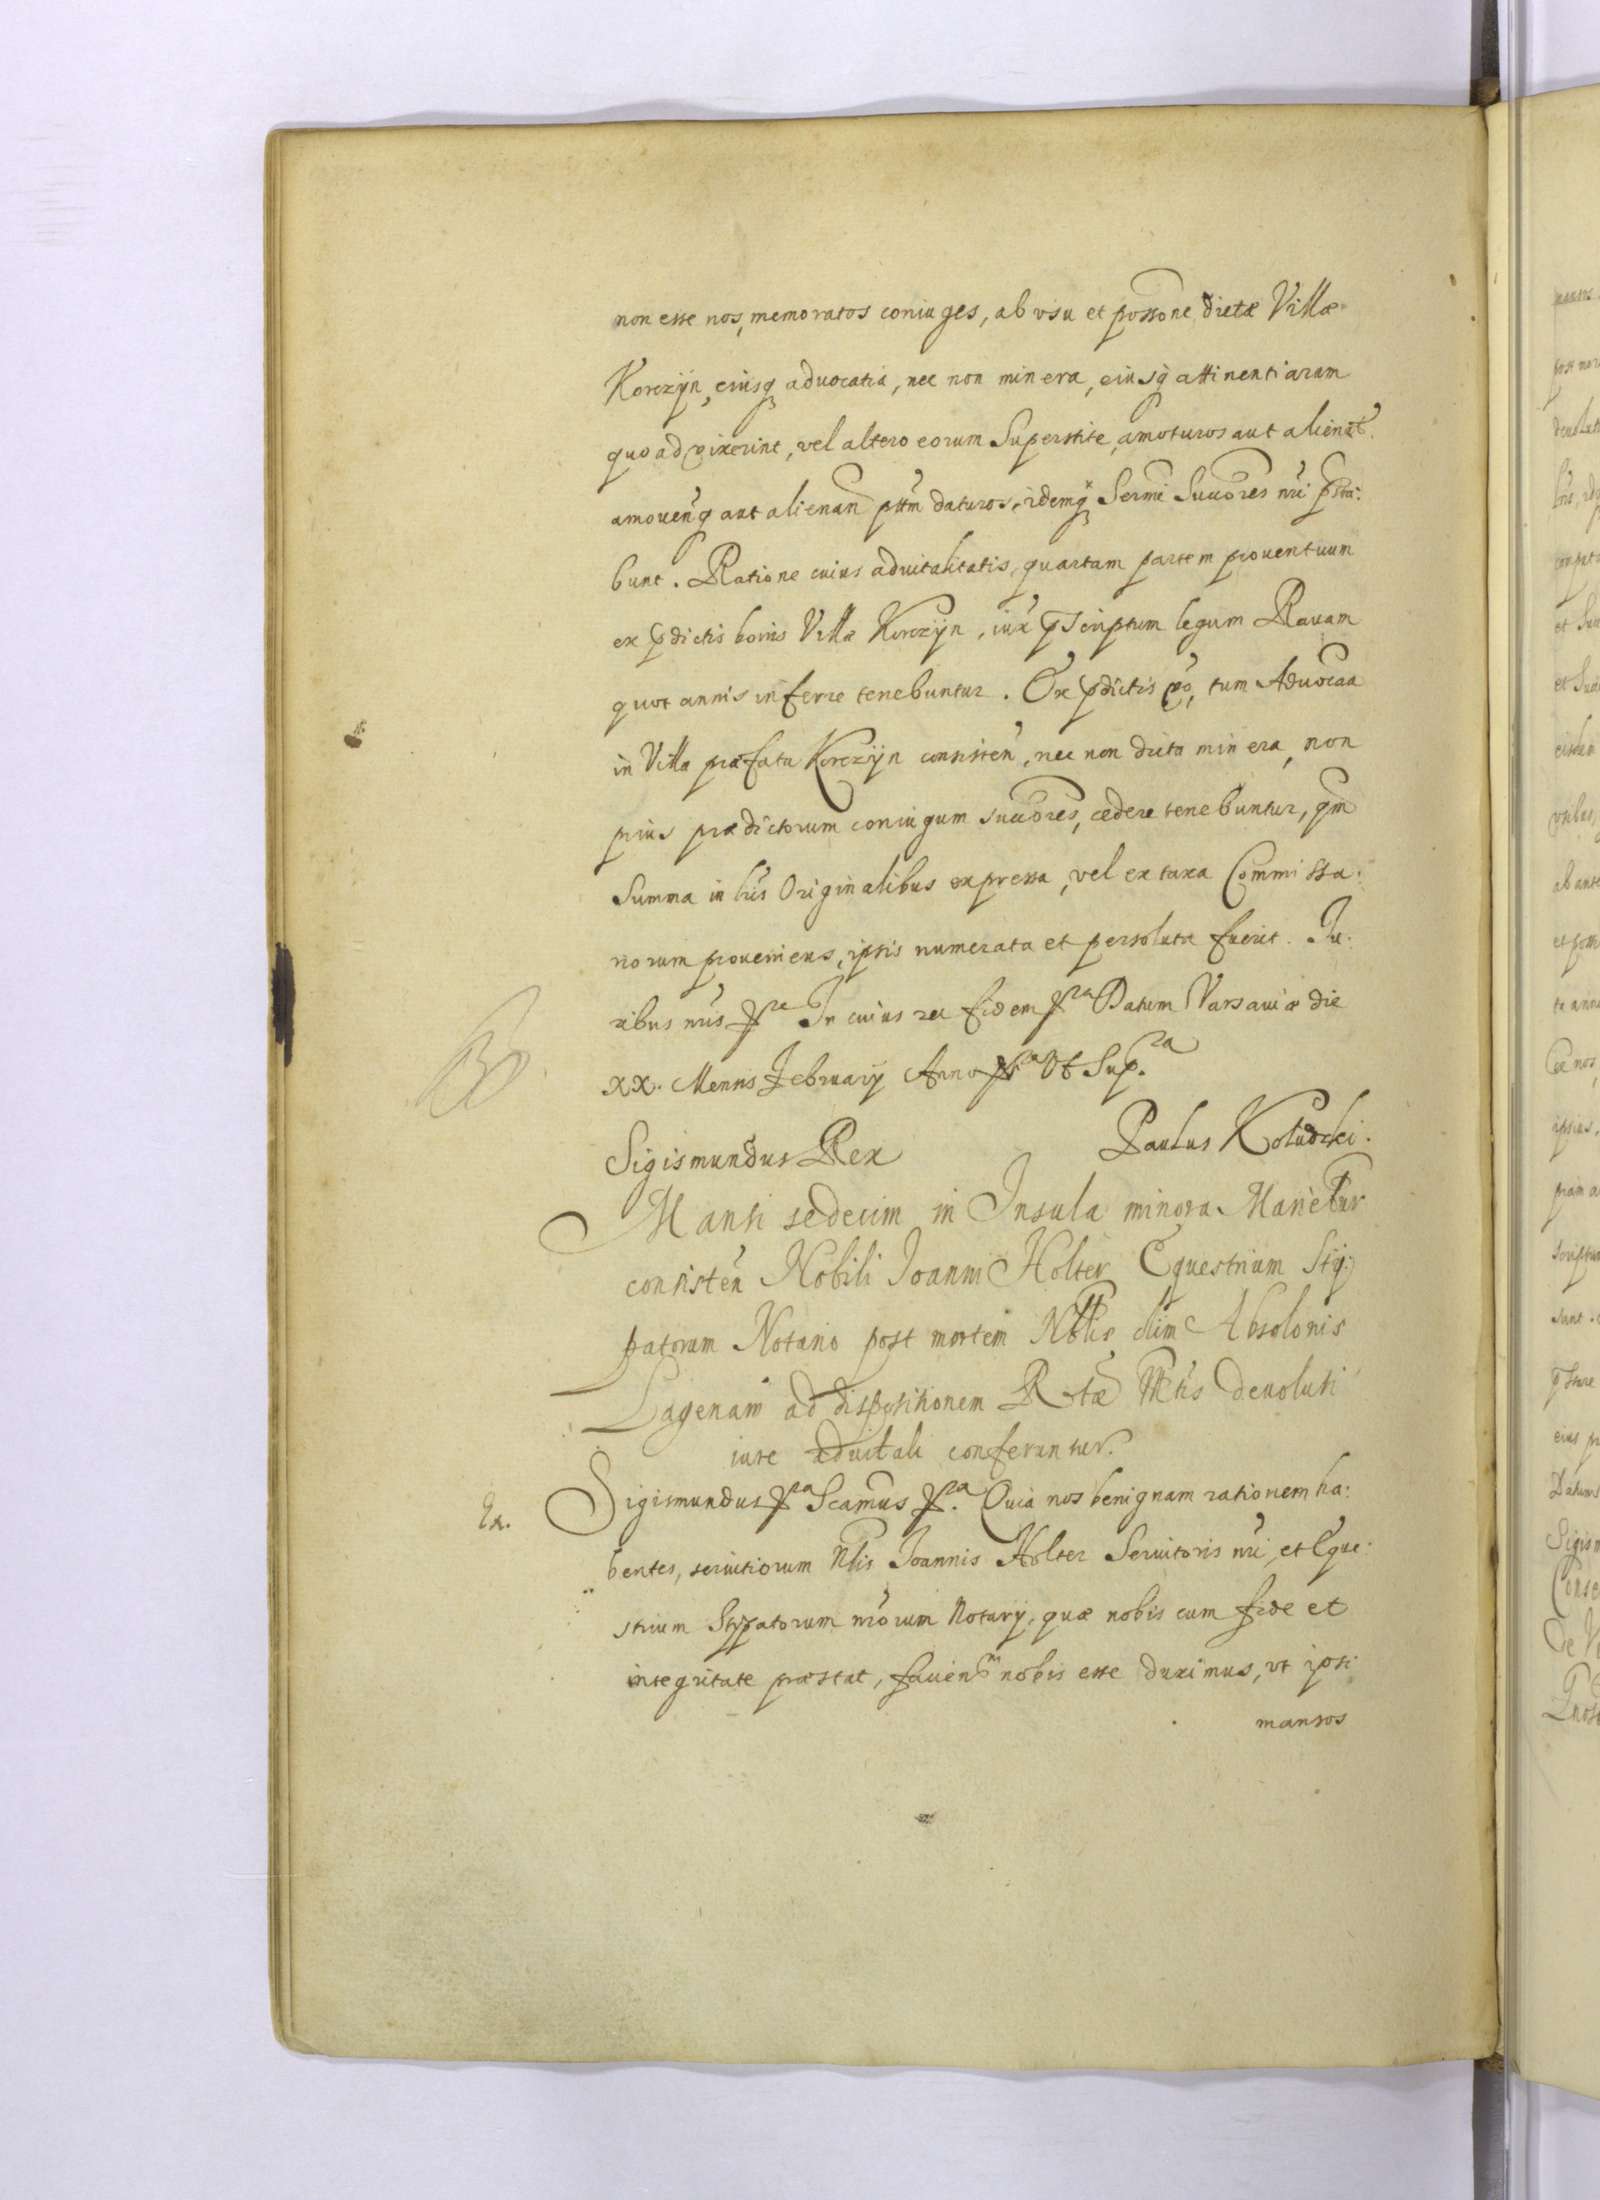 non esse nos, memoratos coniuges, ab vsu et possone dictæ Villæ
Korczÿn, eiusq aduocatia, nec non minera, eiusq attinentiarum
quo ad vixerint, vel altero eorum Superstite, amoturos aut alienat.
amouenq aut alienan ptem daturos, idemq Sermi Succores nri psta:
bunt. Ratione cuius aduitalitatis, quartam partem prouentuum
ex pdictis bonis Villæ Korczÿn, iux pscriptum legum Rauam
quot annis inferre tenebuntur. Ex pdictis vo, tum Aduocaa
in Villa præfata Korczÿn consisten, nec non dicta minera, non
prius prædictorum coniugum succores, cedere tenebuntur, qm
Summa in lris Originalibus expressa, vel ex taxa Commissa:
riorum proueniens, ipsis numerata et persoluta fuerit. Iu:
ribus nris pra In cuius rei fidem pra Datum Varsauiæ die
xx. Mensis February Anno Vt Supra
Sigismundus Rex
Paulus Kołudzki.
Mansi sedecim in Insula minora Marietur
consisten Nobili Ioanni Holter Equestrium Stÿ:
patorum Notario post mortem Nblis olim Absolonis
Lagenam ad dispositionem R tæ Mtis deuoluti
iure aduitali conferuntur.
Ex.
Sigismundus pra Scamus pra. Quia nos benignam rationem ha:
bentes, seruitiorum Nlis Ioannis Holter Seruitoris nri, et Eque:
strium Stÿpatorum nrorum Notarÿ, quæ nobis cum fide et
integritate præstat, facien nobis esse duximus, vt ipsi
mansos